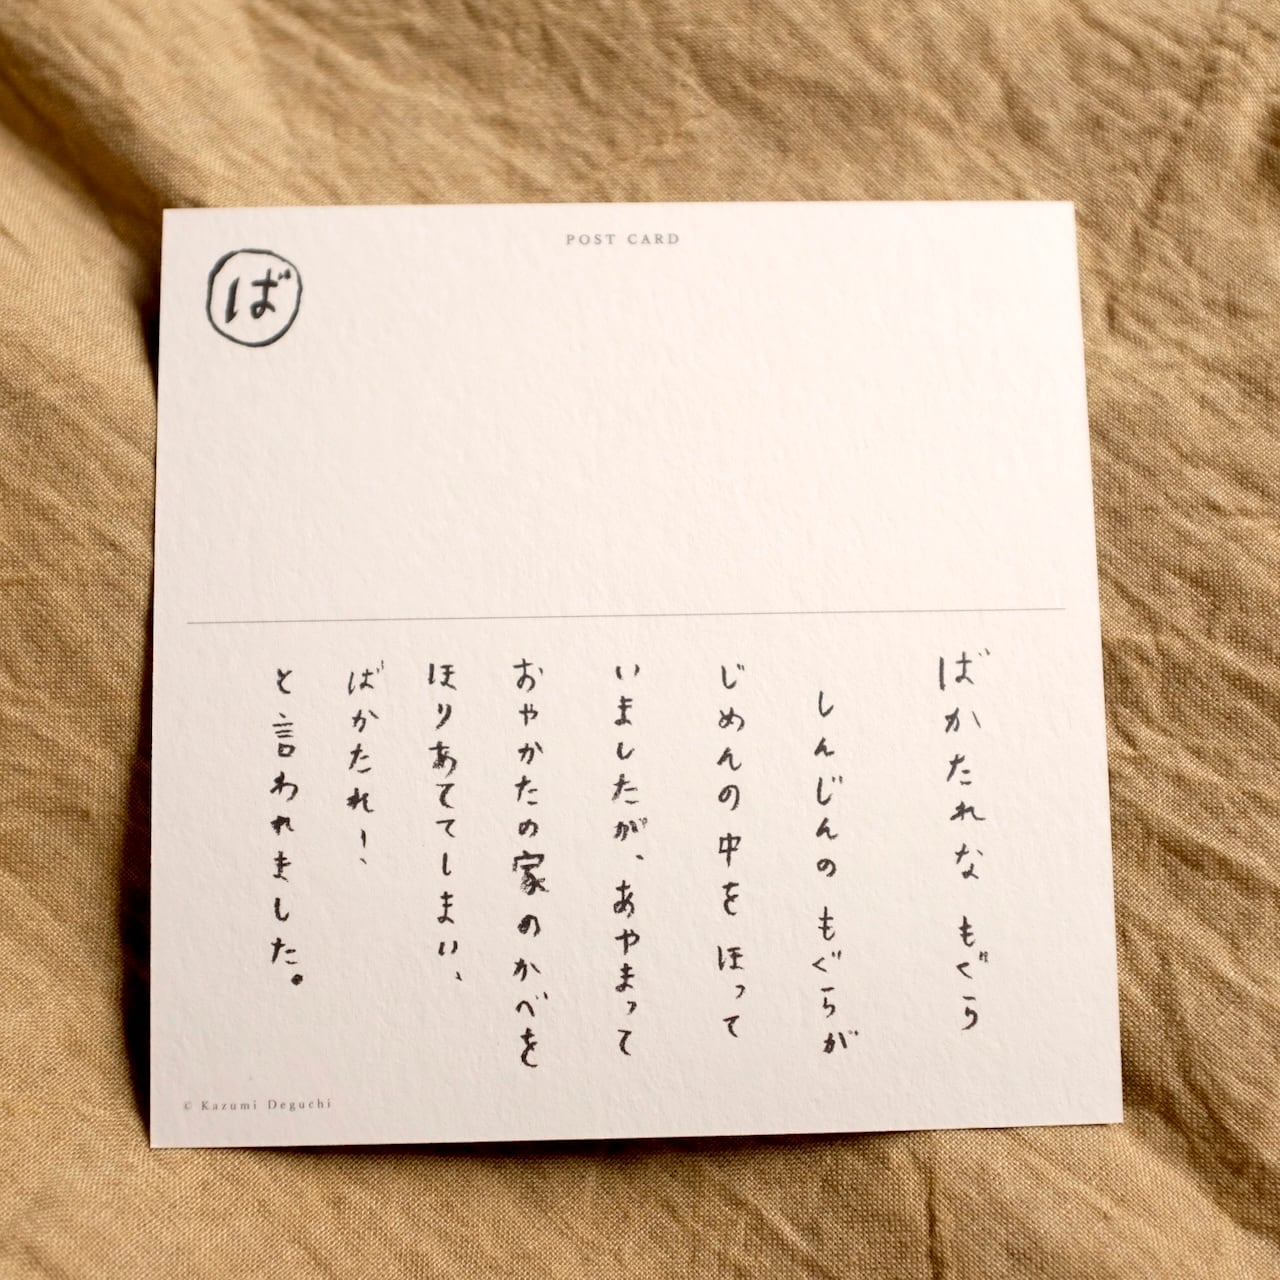 POST CARD
ば
ばかたれな もぐら
しんじんの もぐらが
じめんの中を ほって
いましたが、あやまって
おやかたの家のかべを
ほりあててしまい、
ばかたれー、
と言われました。
© Kazumi Deguchi